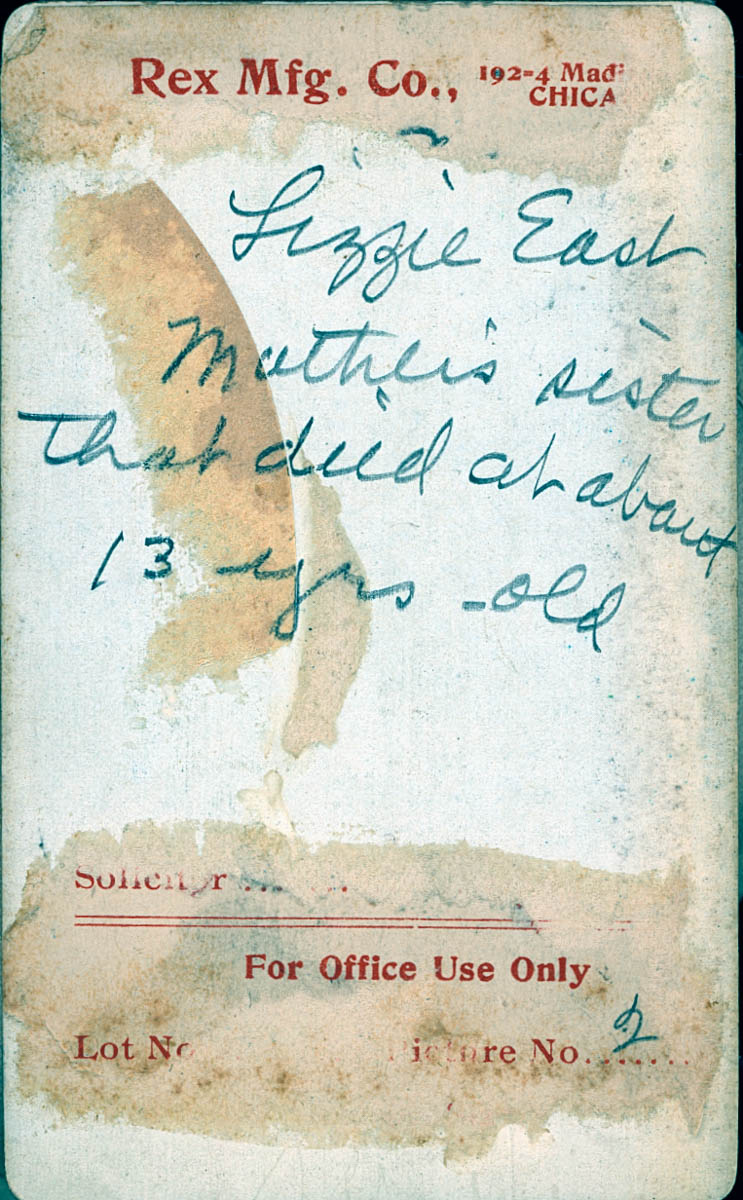 Rex Mfg. Co., 192-4 Madi
CHICA
Lizzie East
Mother's sister
that died at about
13 yrs - old
Solicitor ......
For Office Use Only
Lot No Picture No. 2 .......